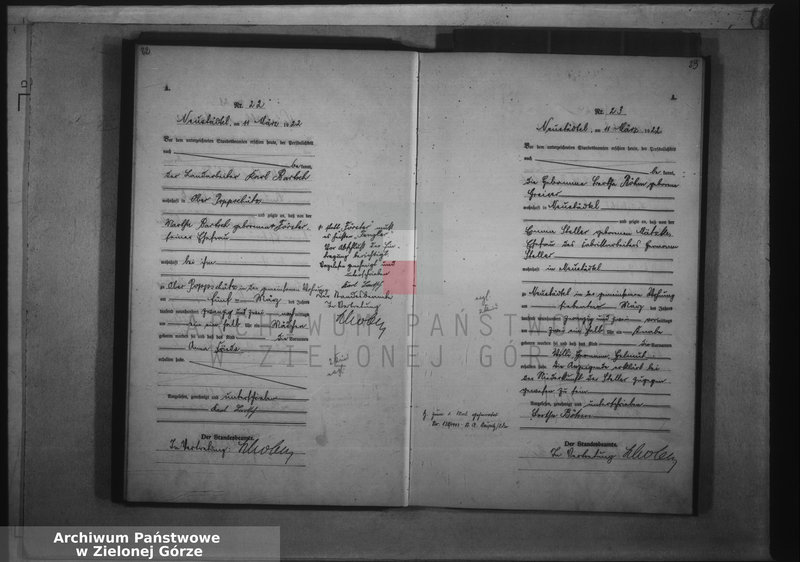 22
A.
Nr. 22
Neustädtel, am 11 März 1922
Vor dem unterzeichneten Standesbeamten erschien heute, der Persönlichkeit
nach
be kannt,
der Landarbeiter Karl Bartsch
wohnhaft in Ober Poppschütz
und zeigte an, daß von der
Bartsch geborene * Förster
seiner Ehefrau
wohnhaft bei ihm
zu Ober Poppschütz in der gemeinsamen Wohnung
am fünf März des Jahres
tausend neunhundert zwanzig und zwei
um ein halb Uhr ein Mädchen
geboren worden sei und daß das Kind die Vornamen
Anna
erhalten habe.
Vorgelesen, genehmigt und unterschrieben
Karl Bartsch
Der Standesbeamte.
In Vertretung
* statt "Förster" muß
es heißen
Vor Abschluß der Ein-
tragung berichtigt.
Vorgelesen genehmigt und
unterschrieben
Karl Bartsch
Der Standesbeamte
In Vertretung
23
A.
Nr. 23
Neustädtel, am 11 März 1922
Vor dem unterzeichneten Standesbeamten erschien heute, der Persönlichkeit
nach
be kannt,
die Hebamme Bertha Böhm geborene
wohnhaft in Neustädtel
und zeigte an, daß von der
Emma Steller geborenen
Ehefrau des Fabrikarbeiters Hermann
Steller
wohnhaft in Neustädtel
zu Neustädtel in der gemeinsamen Wohnung
am siebenten März des Jahres
tausend neunhundert zwanzig und zwei vormittags
um zwei ein halb Uhr ein Knabe
geboren worden sei und daß das Kind die Vornamen
Willi Hermann Helmut
erhalten habe. Die Anzeigende erklärt bei
der Niederkunft der Steller zugegen
gewesen zu sein
Vorgelesen, genehmigt und unterschrieben
Bertha Böhm
Der Standesbeamte.
In Vertretung
ARCHIWUM PAŃSTWOWE
W ZIELONEJ GÓRZE
Archiwum Państwowe
w Zielonej Górze